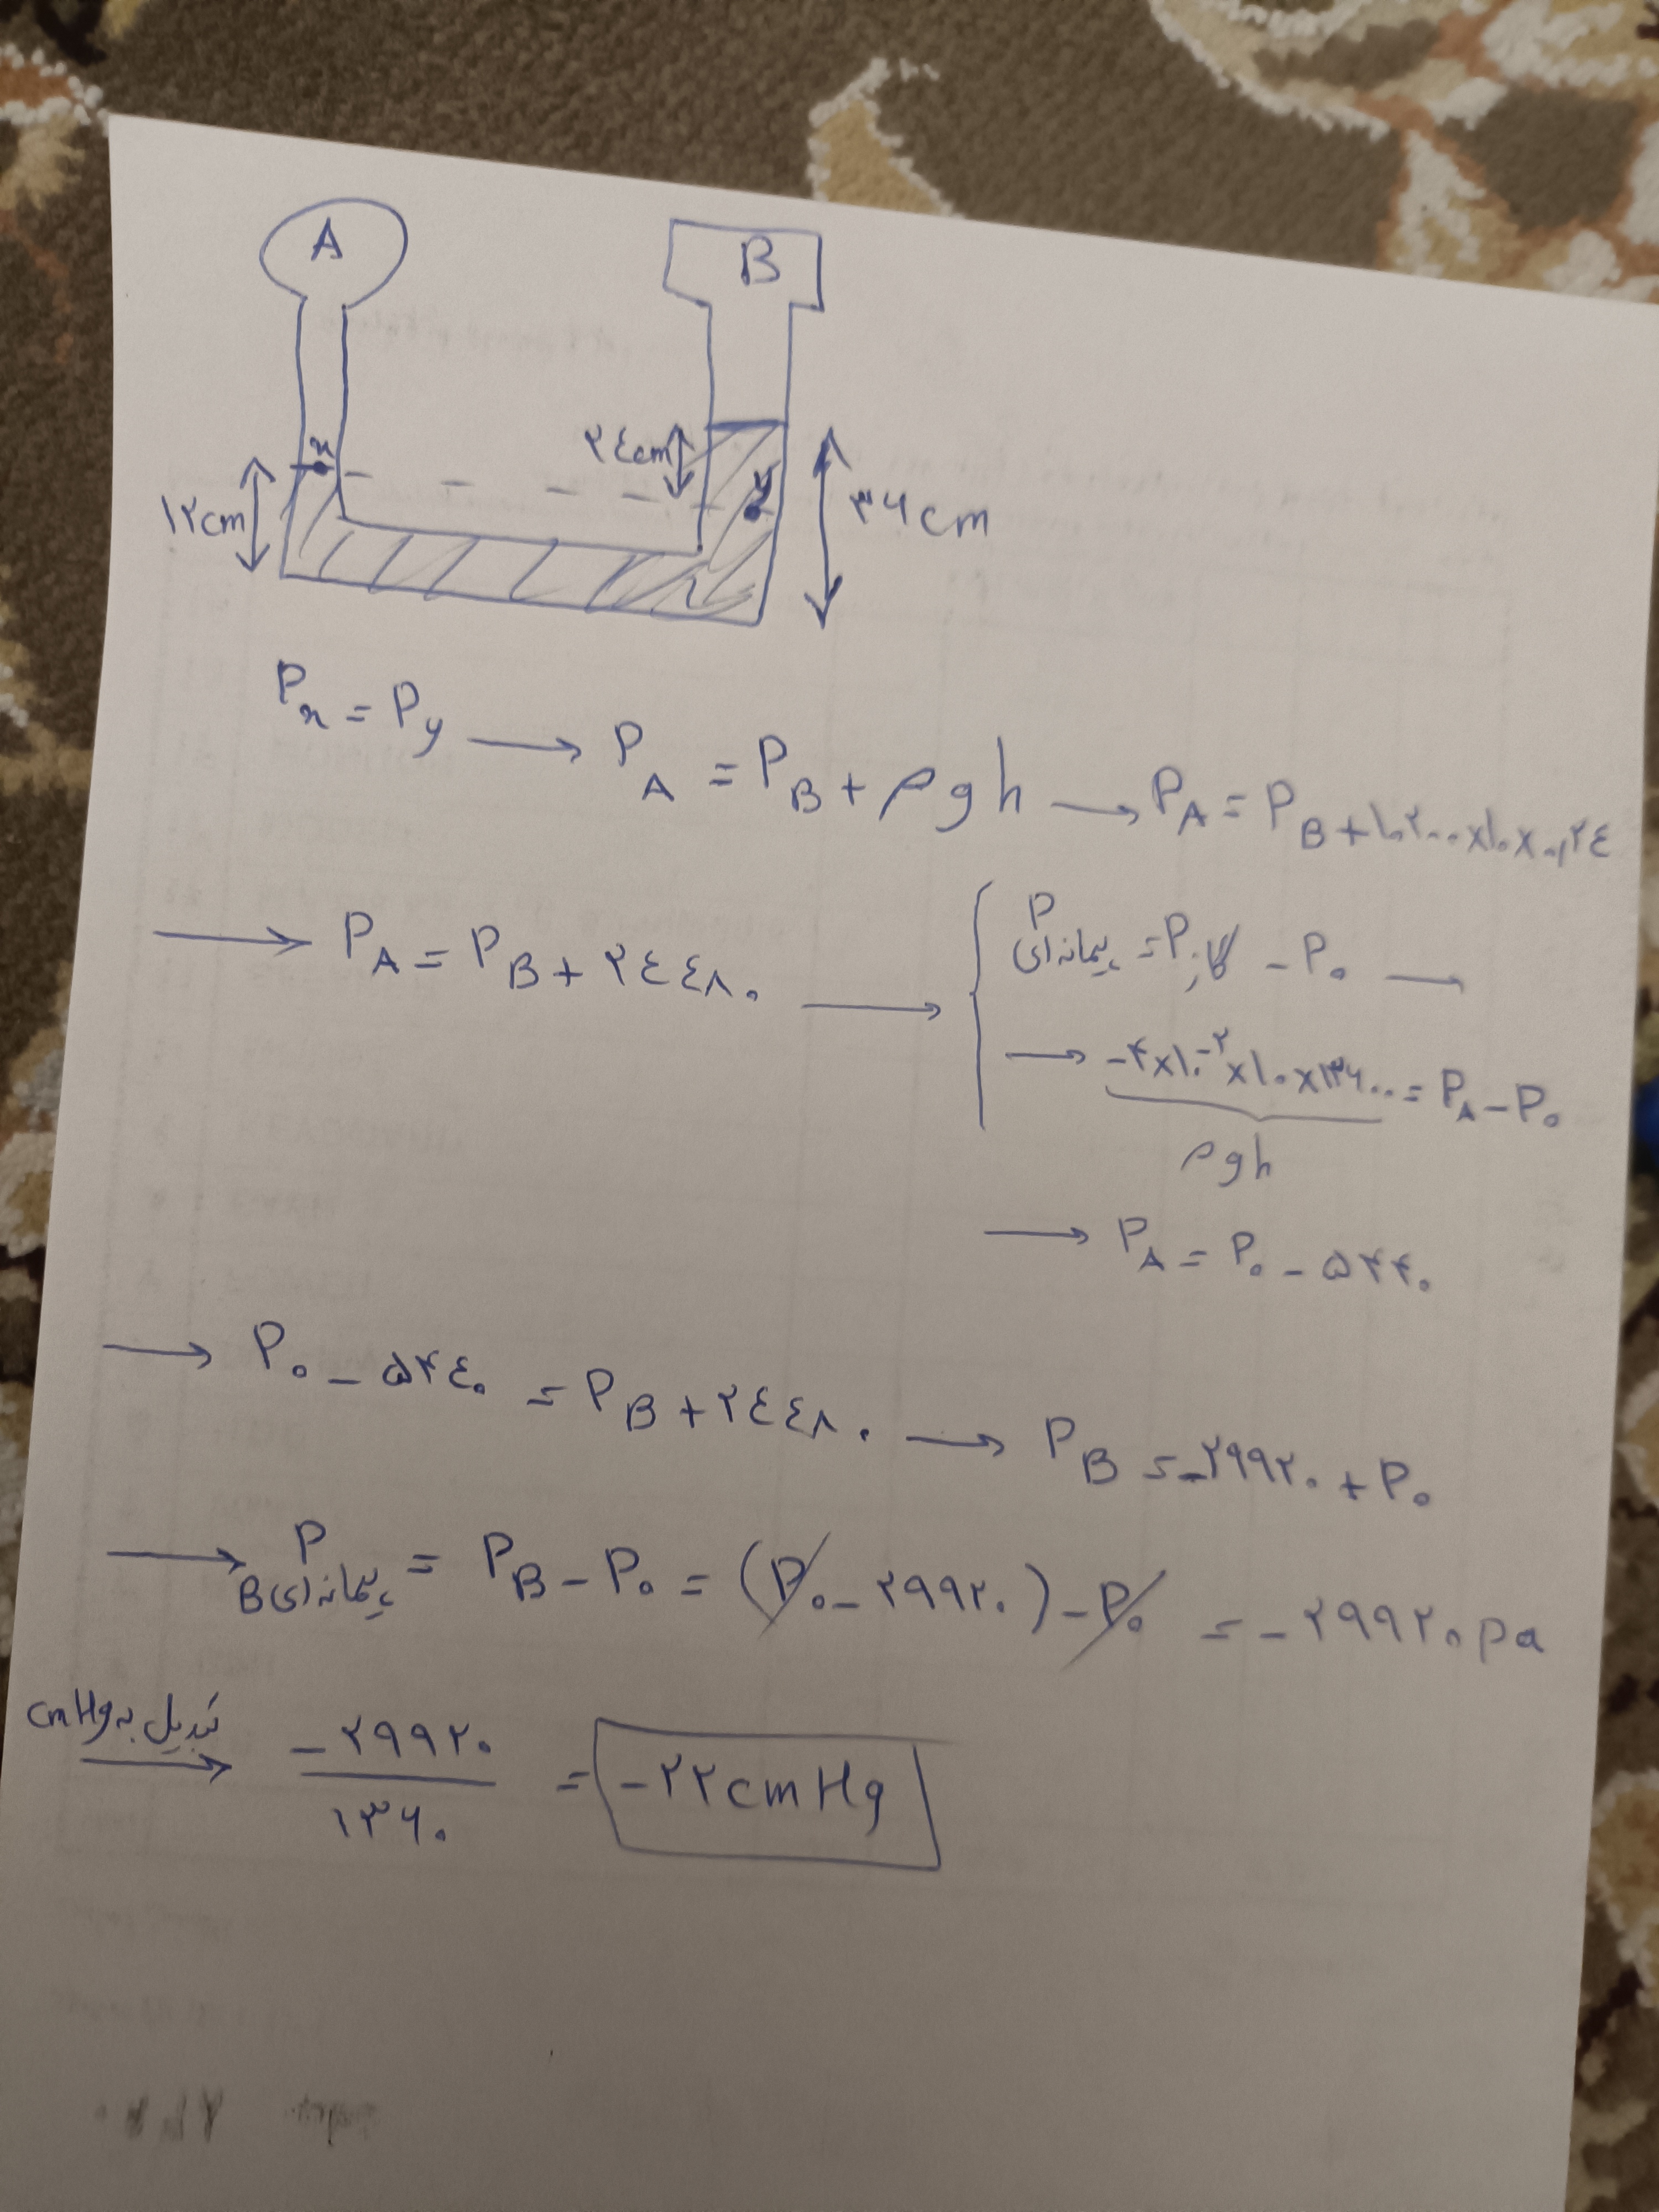 A
B
x
۲٤cm
y
۱۲cm
۳۶cm
Px = Py → PA = PB + ρgh → PA = PB + ۱۰۲۰۰ × ۱۰ × ۰٫۲٤
→ PA = PB + ۲٤٤۸۰ → { P پیمانه‌ای = P گاز - P۰ →
→ -۴×۱۰^-۲ × ۱۰ × ۱۳۶۰۰ = PA - P۰
ρgh
→ PA = P۰ - ۵۴۴۰
→ P۰ - ۵۴٤۰ = PB + ۲٤٤۸۰ → PB = -۲۹۹۲۰ + P۰
→ P پیمانه‌ای B = PB - P۰ = (P۰ - ۲۹۹۲۰) - P۰ = -۲۹۹۲۰ pa
تبدیل به cmHg → -۲۹۹۲۰ / ۱۳۶۰ = -۲۲ cmHg